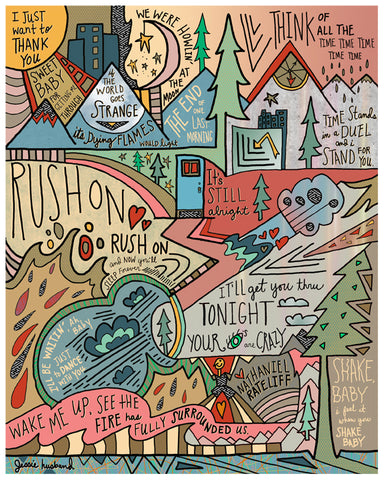 I JUST
want to
THANK
YOU
SWEET
BABY
for
GETTING ME
THROUGH
WE WERE HOWLIN'
AT
THE
MOON
I THINK OF
ALL THE
TIME TIME TIME
TIME TIME
if
THE
WORLD
GOES
STRANGE
THE END
of
OUR LAST
MORNING
its Dying FLAMES
would light
TIME Stands
in a DUEL
and i
STAND for
YOU.
RUSH ON
RUSH ON
and NOW you'll
SLIP Forever
It's
STILL
alright
IT'LL get you thru
TONIGHT
YOUR
are CRAZY
I'LL BE WAITIN' ON
BABY
JUST
to
DANCE
with you
NATHANIEL
RATELIFF
SHAKE,
BABY
i feel it
when you
SHAKE
BABY
WAKE ME UP, SEE THE
FIRE has
FULLY SURROUNDED US.
Jessie husband